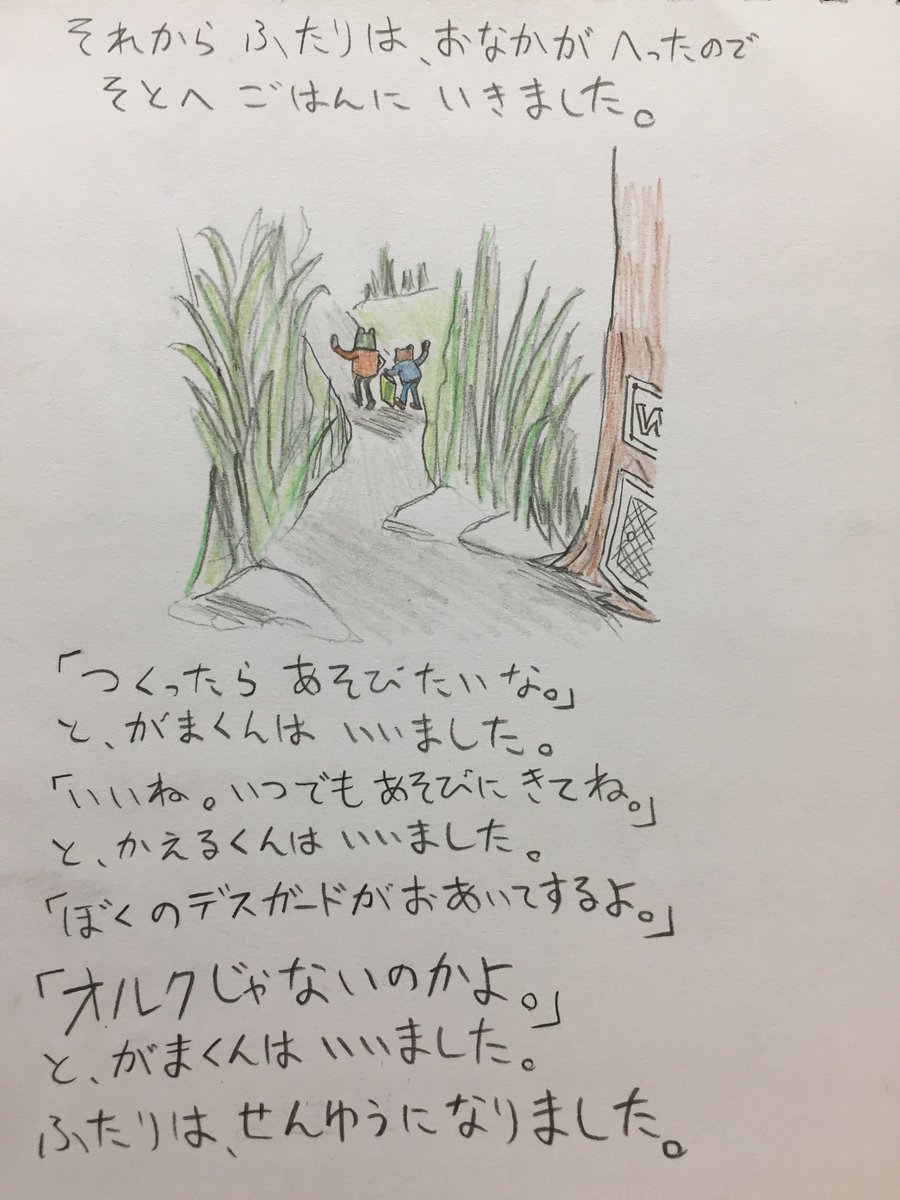 それから ふたりは、おなかが へったので
そとへ ごはんに いきました。
「つくったら あそびたいな。」
と、がまくんは いいました。
「いいね。いつでも あそびに きてね。」
と、かえるくんは いいました。
「ぼくのデスガードがおあいてするよ。」
「オルクじゃないのかよ。」
と、がまくんは いいました。
ふたりは、せんゆうになりました。